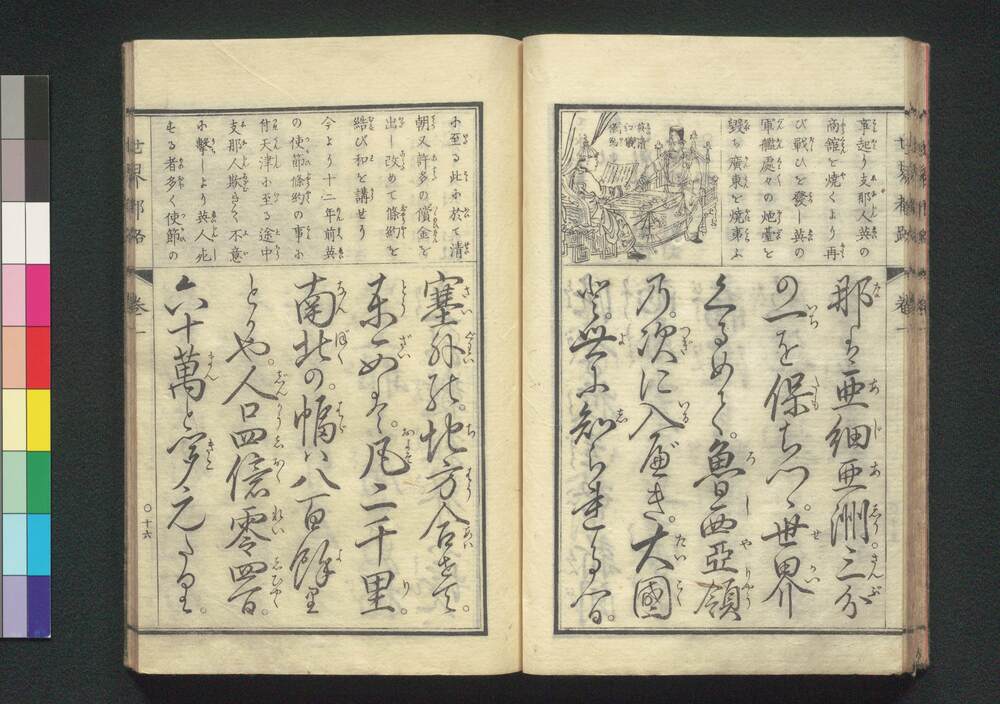 世界都路
卷一
事起り支那人英の
商館を焼くより再
び戦ひを發し英の
軍艦處々の炮臺を
毀ち廣東を焼事ふ
那ハ亜細亜洲三分
の一を保ちつゝ世界
魯西亞領
乃次に入べき大國
と世に知られ
に至る此に於て清
朝又許多の償金を
出し改めて條約を
結び和を講せり
今より十二年前英
の使節條約の事に
付天津に至る途中
支那人欺きて不意
に撃しより英人死
する者多く使節の
塞外の地方合せて
東西ハ凡二千里
南北の幅ハ八百餘里
とかや人口四億零四百
六十萬と聞えたり
世界都路
卷一
○十六